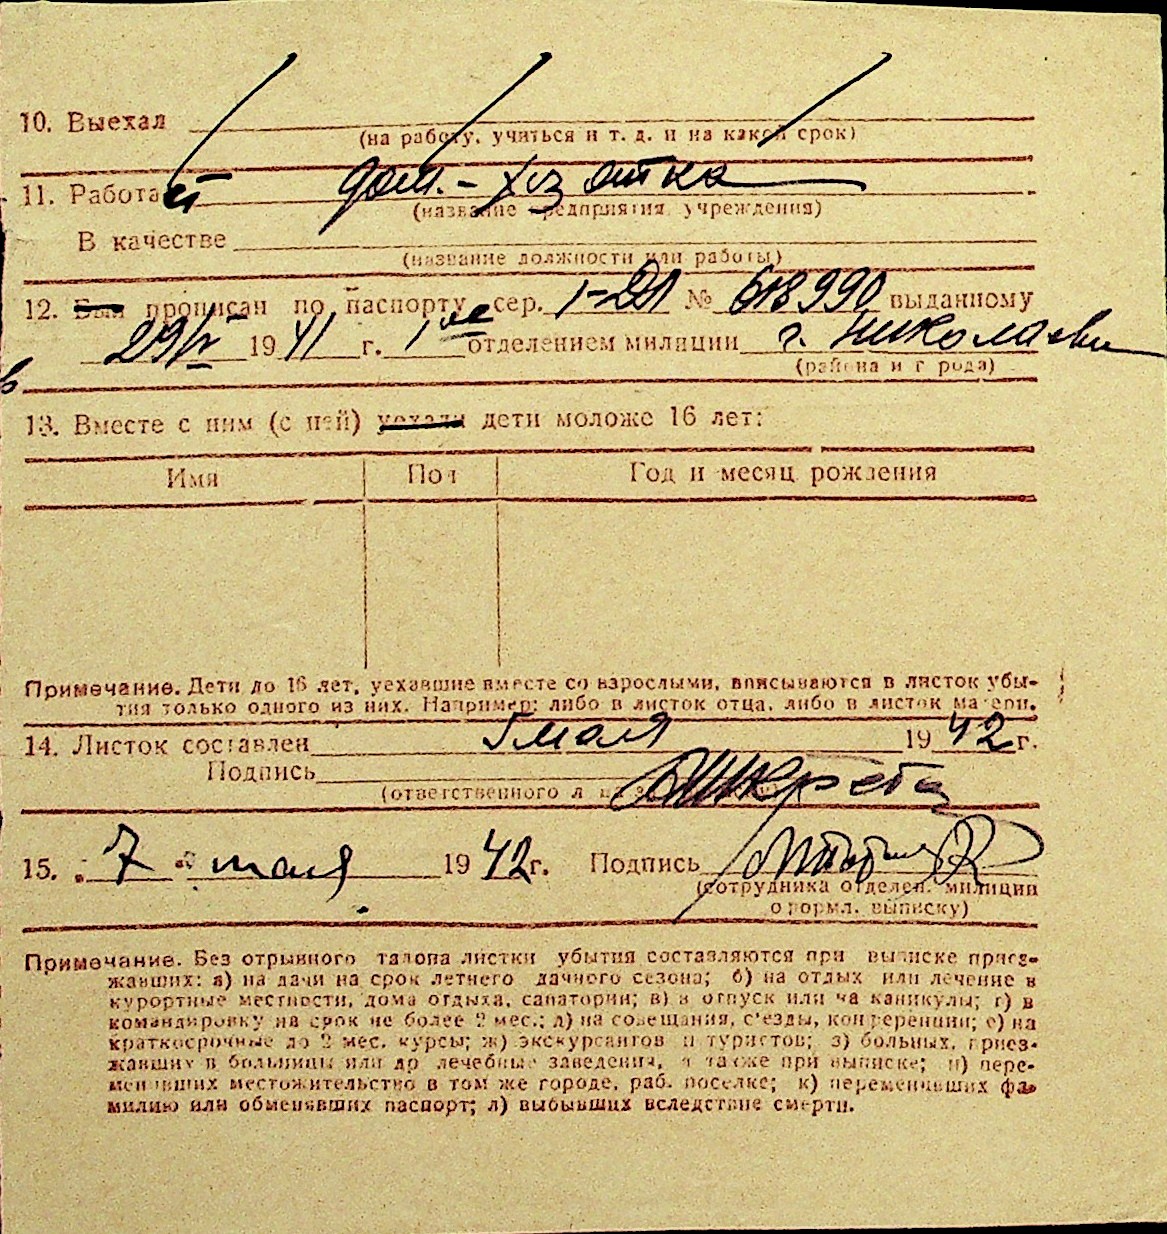 10. Выехал
(на работу, учиться и т. д. и на какой срок)
11. Работает дом.-хозяйка
(название предприятия, учреждения)
В качестве
(название должности или работы)
12. Был прописан по паспорту сер. № 618990 выданному
29/V 1941 г. 1ое отделением милиции г. Николаев
(района и города)
13. Вместе с ним (с ней) уехали дети моложе 16 лет:
Имя Пол Год и месяц рождения
Примечание. Дети до 16 лет, уехавшие вместе со взрослыми, вписываются в листок убы-
тия только одного из них. Например: либо в листок отца, либо в листок матери.
14. Листок составлен 5 мая 1942 г.
Подпись
(ответственного л
15. "7" мая 1942 г. Подпись
(сотрудника отделен. милиции
оформл. выписку)
Примечание. Без отрывного талона листки убытия составляются при выписке приез-
жавших: а) на дачи на срок летнего дачного сезона; б) на отдых или лечение в
курортные местности, дома отдыха, санатории; в) в отпуск или на каникулы; г) в
командировку на срок не более 2 мес.; д) на совещания, с'езды, конференции; е) на
краткосрочные до 2 мес. курсы; ж) экскурсантов и туристов; з) больных, приез-
жавших в больницы или др лечебные заведения, а также при выписке; и) пере-
менивших местожительство в том же городе, раб. поселке; к) переменивших фа-
милию или обменявших паспорт; л) выбывших вследствие смерти.